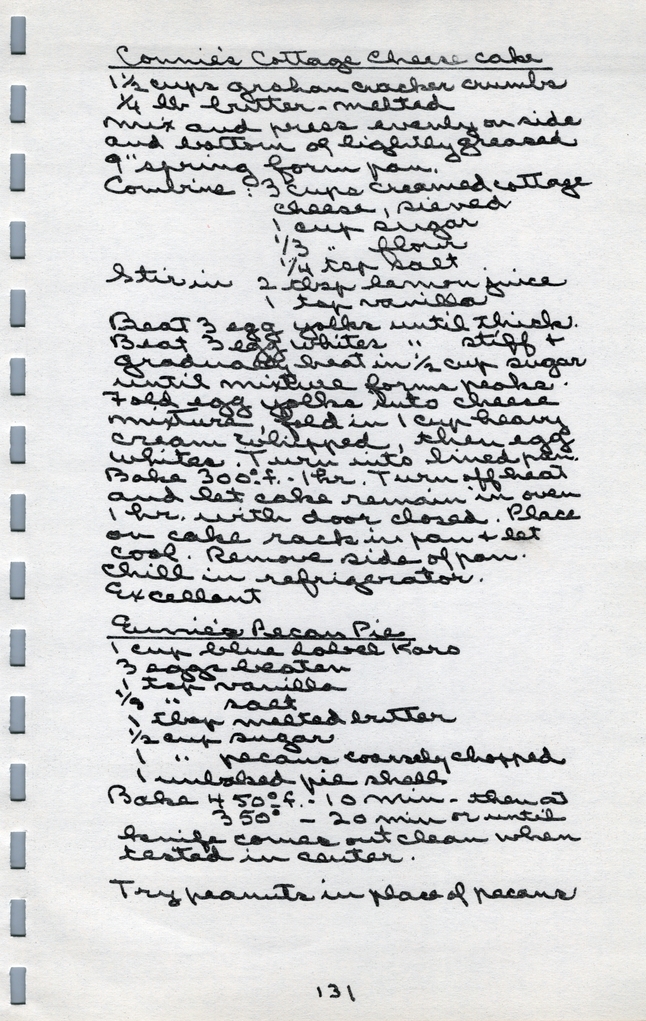 Connie's Cottage Cheese cake
1½ cups graham cracker crumbs
¼ lb butter - melted
Mix and press evenly on side
and bottom of lightly greased
9" spring form pan.
Combine: 3 cups creamed cottage
cheese, sieved
1 cup sugar
1/3 " flour
1/4 tsp salt
Stir in 2 tbsp lemon juice
1 tsp vanilla
Beat 3 egg yolks until thick.
Beat 3 egg whites " stiff +
gradually beat in ½ cup sugar
until mixture forms peaks.
Fold egg yolks into cheese
mixture, fold in 1 cup heavy
cream whipped, then egg
whites. Turn into lined pan.
Bake 300° f. - 1 hr. Turn off heat
and let cake remain in oven
1 hr. with door closed. Place
on cake rack in pan + let
cool. Remove side of pan.
Chill in refrigerator.
Excellent
Eunie's Pecan Pie
1 cup blue label Karo
3 eggs beaten
1 tsp vanilla
1/8 " salt
1 tbsp melted butter
½ cup sugar
1 " pecans coarsely chopped
1 unbaked pie shell
Bake 450° f. - 10 min - then at
350° - 20 min or until
knife comes out clean when
tested in center.
Try peanuts in place of pecans
131